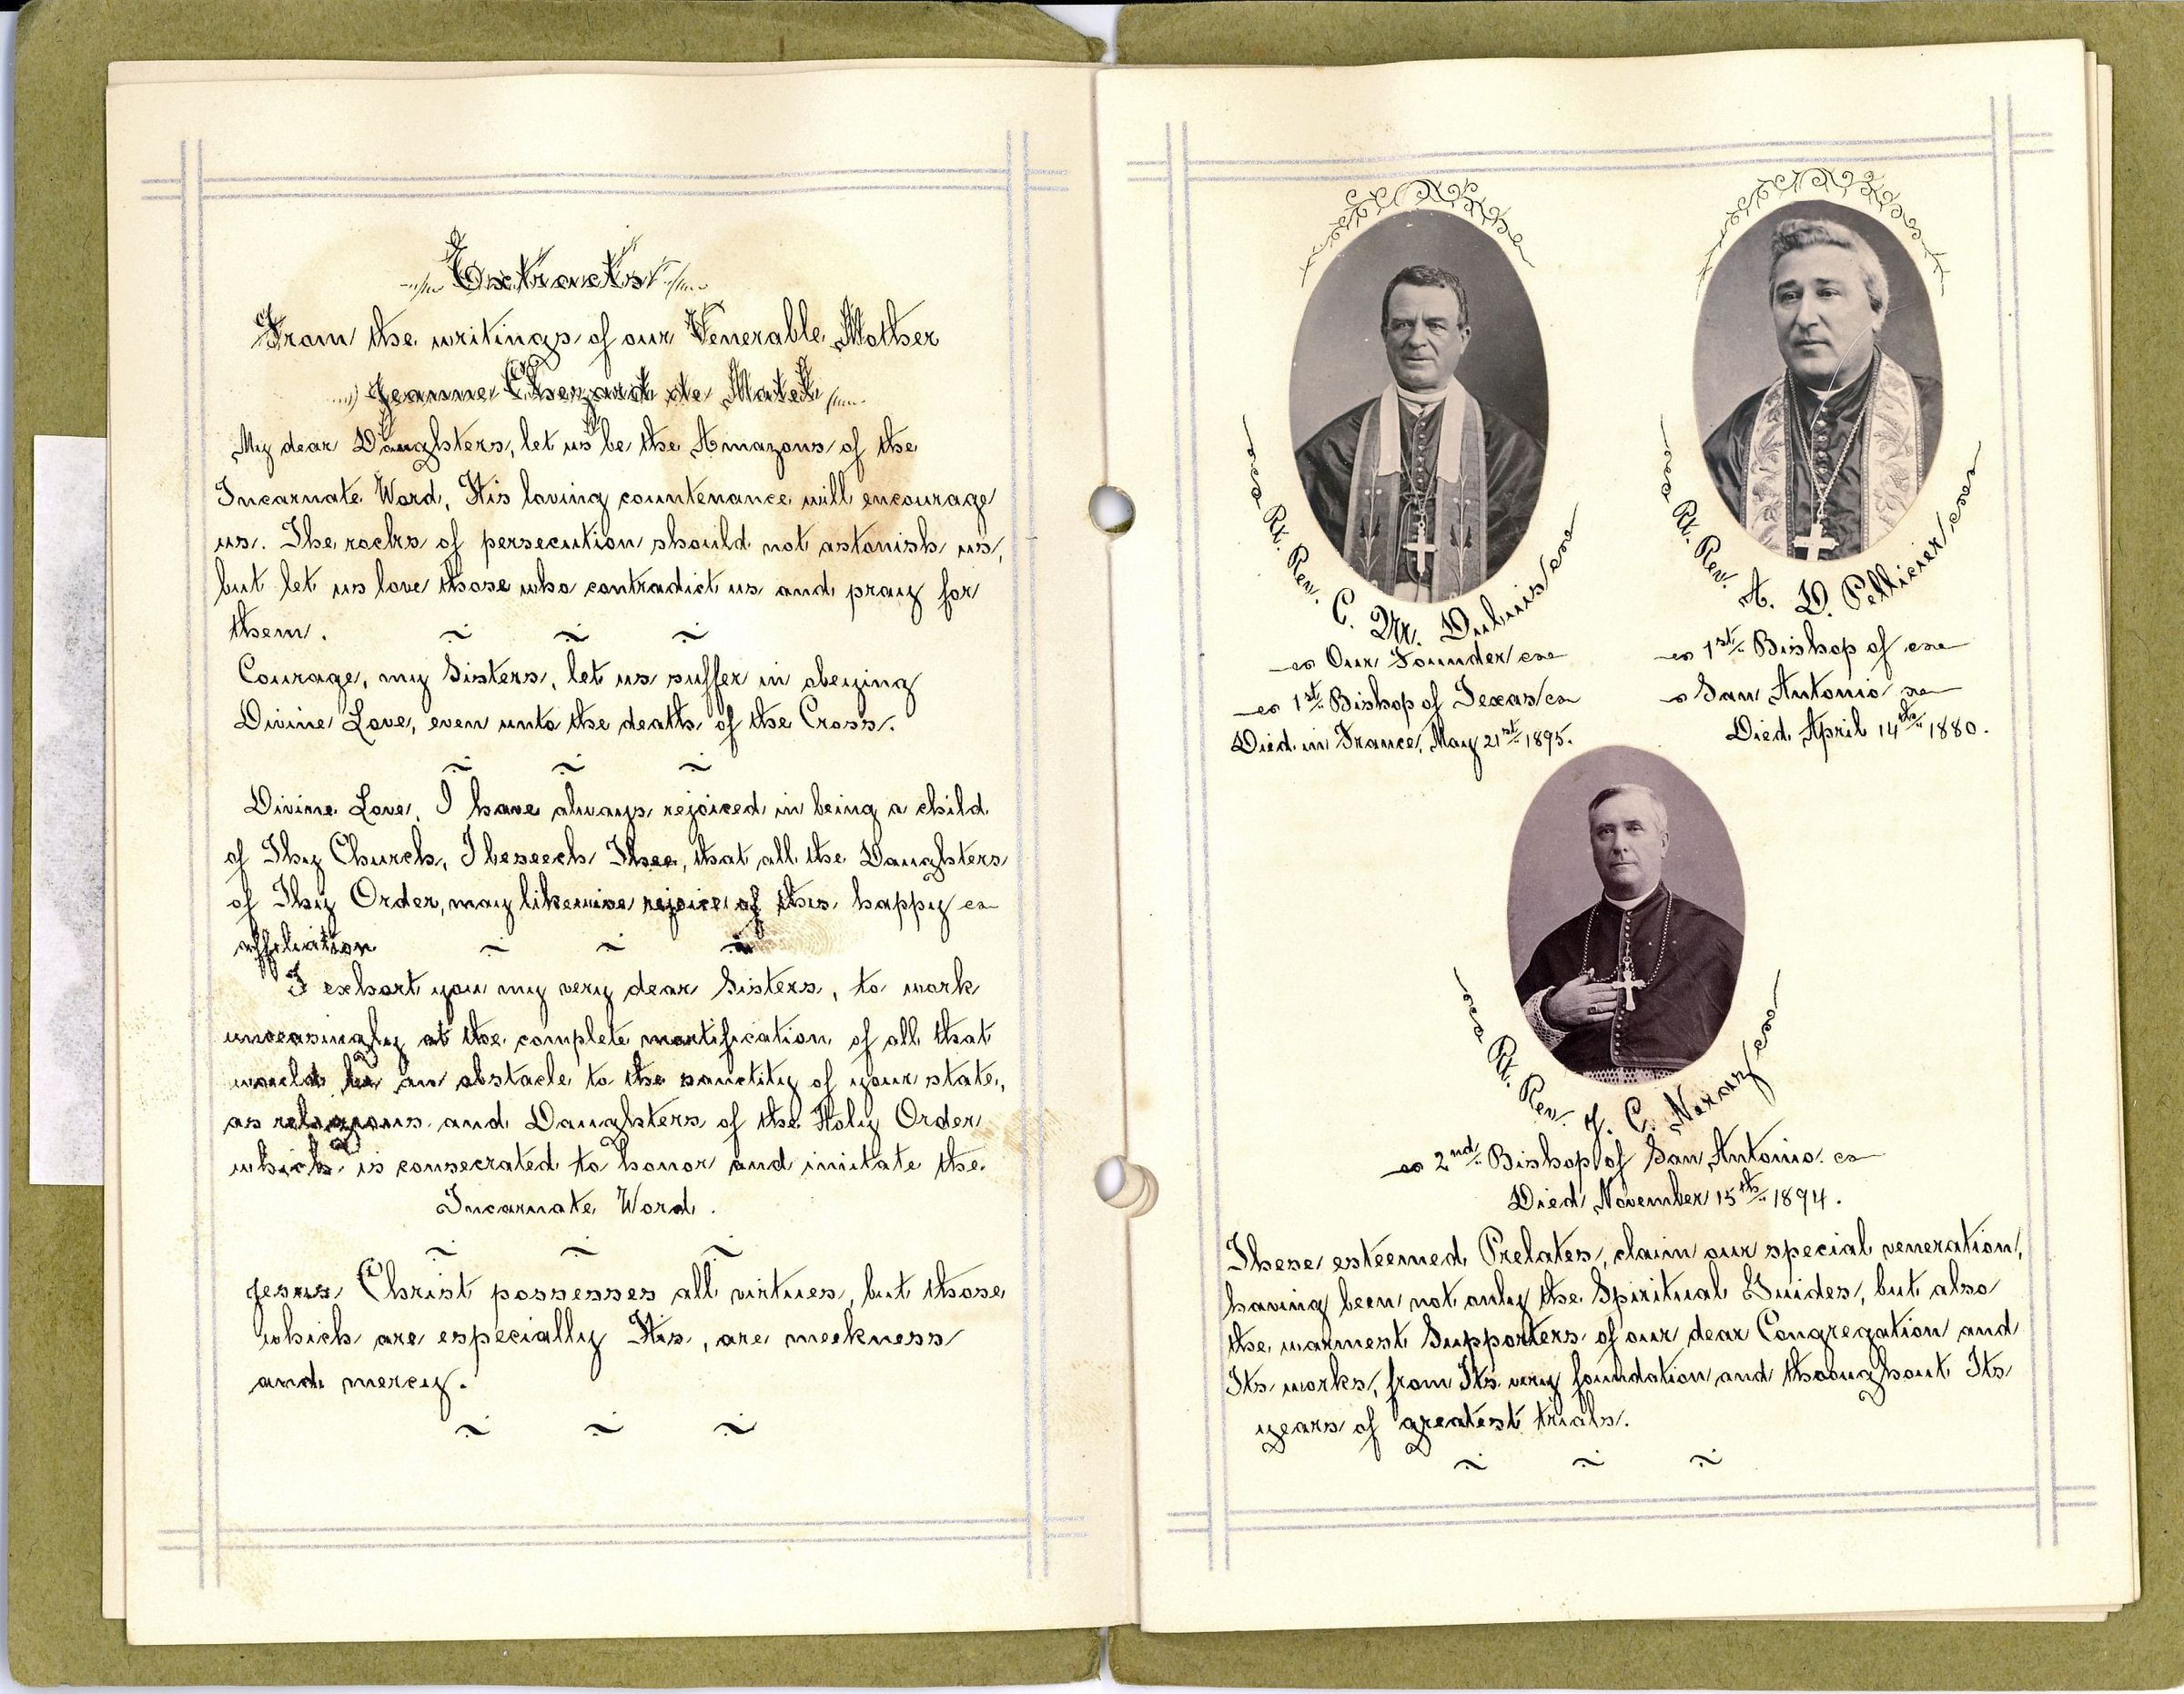 Extracts
From the writings of our Venerable Mother
Jeanne Chezard de Matel
My dear Daughters, let us be the Amazons of the
Incarnate Word, His loving countenance will encourage
us. The rocks of persecution should not astonish us,
but let us love those who contradict us and pray for
them.
Courage, my Sisters, let us suffer in obeying
Divine Love, even unto the death of the Cross.
Divine Love, I have always rejoiced in being a child
of Thy Church, I beseech Thee, that all the Daughters
of Thy Order, may likewise rejoice of this happy
affiliation
I exhort you my very dear Sisters, to work
unceasingly at the complete mortification of all that
would be an obstacle to the sanctity of your state,
as religious and Daughters of the Holy Order
which is consecrated to honor and imitate the
Incarnate Word.
Jesus Christ possesses all virtues, but those
which are especially His, are meekness
and mercy.
Rt. Rev. C. M. Dubuis
Our Founder
1st Bishop of Texas
Died in France, May 21st 1895.
Rt. Rev. A. D. Pellicier
1st Bishop of
San Antonio
Died April 14th 1880.
Rt. Rev. J. C. Neraz
2nd Bishop of San Antonio.
Died November 15th 1894.
These esteemed Prelates, claim our special veneration,
having been not only the Spiritual Guides, but also
the warmest Supporters of our dear Congregation and
Its works, from Its very foundation and thooughout Its
years of greatest trials.